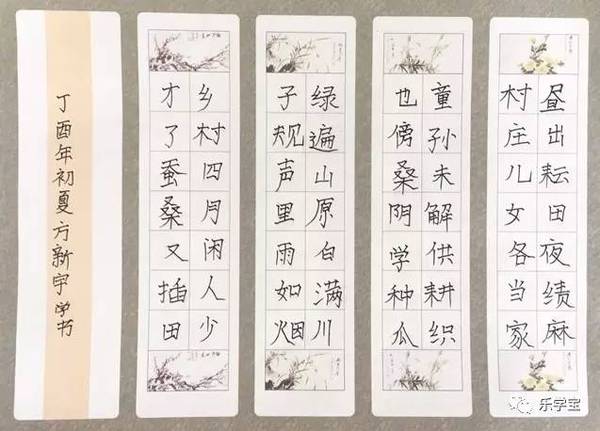 昼出耘田夜绩麻
村庄儿女各当家
童孙未解供耕织
也傍桑阴学种瓜
绿遍山原白满川
子规声里雨如烟
乡村四月闲人少
才了蚕桑又插田
丁酉年初夏方新宇学书
乐学宝